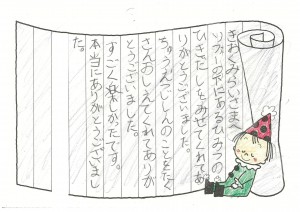 きおくみらいさまへ
ソファーの下にあるひみつの
ひきだしをみせてくれてあ
りがとうございました。
ち。うえつししんのことをたく
さんおしえてくれてありが
とうございました。
すごく楽しかったです。
本当にありがとうございまし
た。